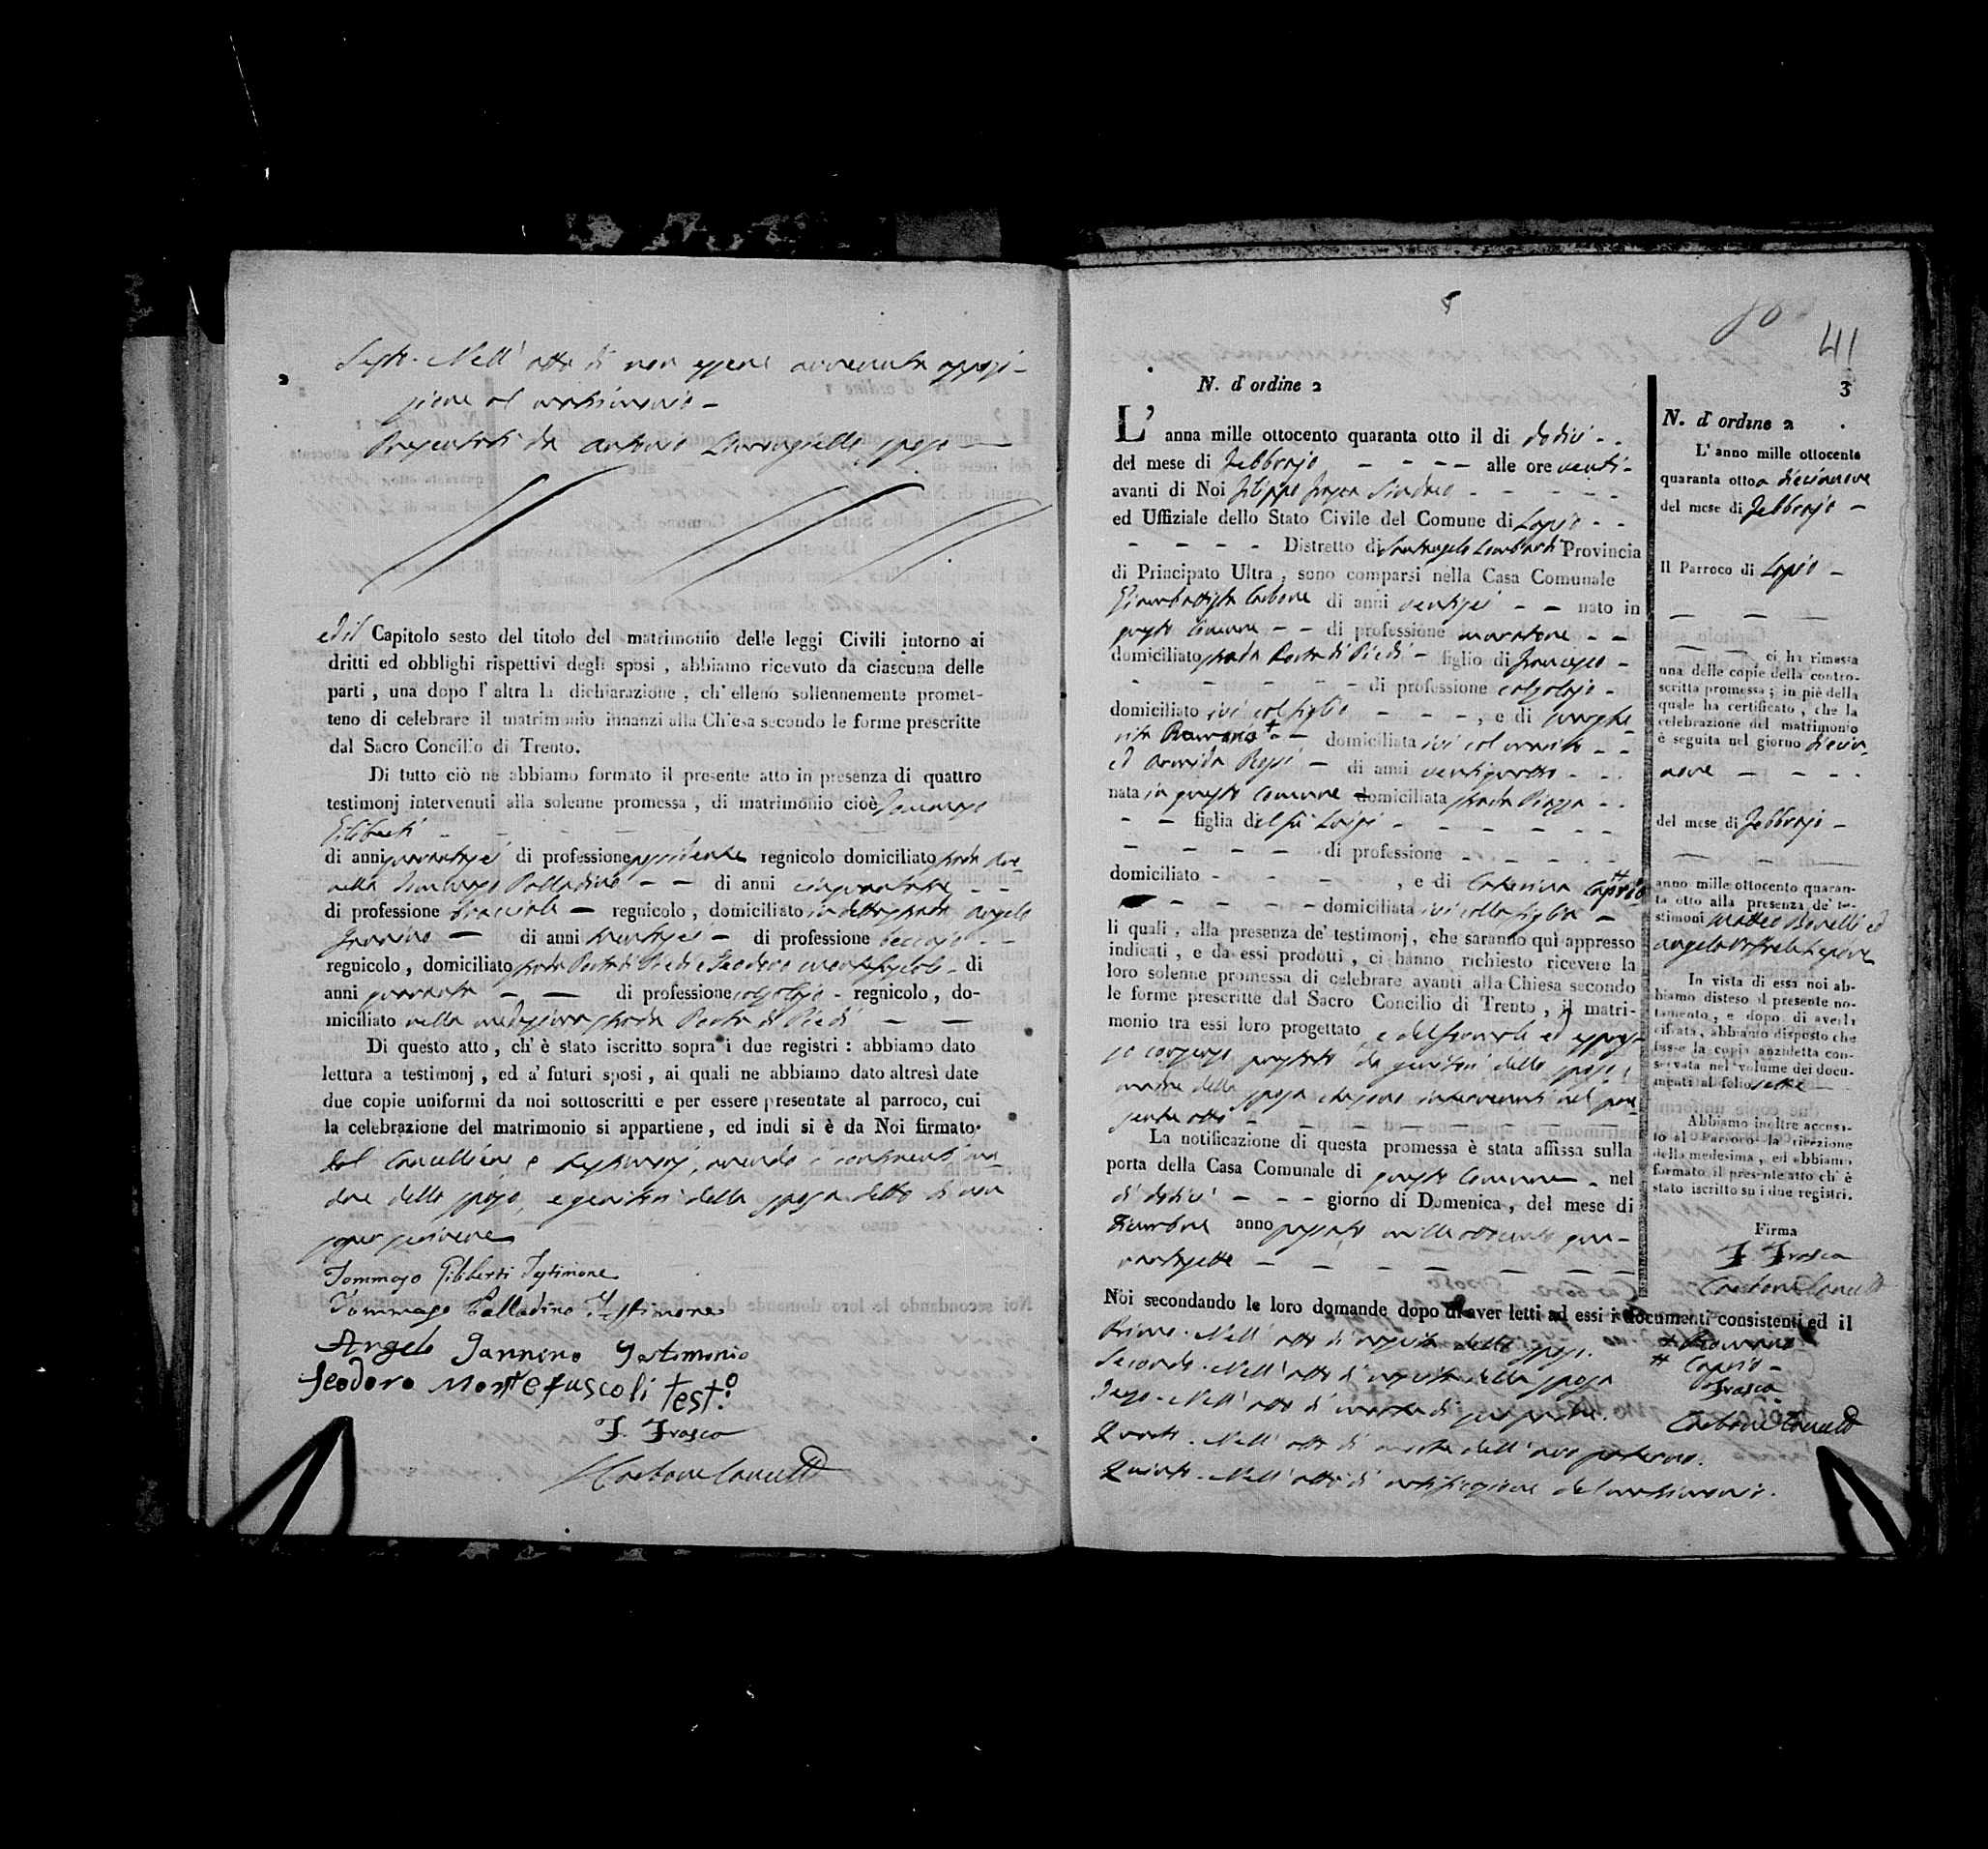 Sesto. Nell' atto di non essere avvenuta opposi-
zione al matrimonio -
Presentati da Antonio sposo
ed il Capitolo sesto del titolo del matrimonio delle leggi Civili intorno ai
dritti ed obblighi rispettivi degli sposi , abbiamo ricevuto da ciascuna delle
parti , una dopo l' altra la dichiarazione , ch' elleno sollennemente promet-
teno di celebrare il matrimonio innanzi alla Chiesa secondo le forme prescritte
dal Sacro Concilio di Trento.
Di tutto ciò ne abbiamo formato il presente atto in presenza di quattro
testimonj intervenuti alla solenne promessa , di matrimonio cioè Tommaso
Giliberti
di anni quarantasei di professione possidente regnicolo domiciliato strada
Tommaso Palladino - - di anni cinquantatre - -
di professione bracciale - regnicolo , domiciliato in detta strada Angelo
Iannino - di anni trentasei - di professione beccajo - -
regnicolo , domiciliato strada Porta di Piedi e Teodoro Montefuscoli - di
anni quaranta - - di professione calzolajo - regnicolo , do-
miciliato nella medesima strada Porta di Piedi - -
Di questo atto , ch' è stato iscritto sopra i due registri : abbiamo dato
lettura a testimonj , ed a' futuri sposi , ai quali ne abbiamo dato altresì date
due copie uniformi da noi sottoscritti e per essere presentate al parroco, cui
la celebrazione del matrimonio si appartiene , ed indi si è da Noi firmato.
dal Cancelliere e testimonj, avendo i contraenti ma
dre dello sposo, e genitori della sposa detto di non
saper scrivere
Tommaso Giliberti Testimone
Tommaso Palladino Testimone
Angelo Iannino Testimonio
Teodoro Montefuscoli Testº.
F. Frasca
Carbone Cancell
8
80
41
3
N. d' ordine 2
L' anna mille ottocento quaranta otto il di dodici - -
del mese di Febbrajo - - - - alle ore venti -
avanti di Noi Filippo Frasca Sindaco - - - - -
ed Uffiziale dello Stato Civile del Comune di Lapio - -
- - - - Distretto di Santangelo Lombardi Provincia
di Principato Ultra , sono comparsi nella Casa Comunale
Giambattista Carbone di anni ventisei - - nato in
questo Comune - - di professione muratore - -
domiciliato strada Porta di Piedi - figlio di Francesco -
- - - - - - di professione calzolajo -
domiciliato ivi col figlio - - - , e di Marghe
rita Romano + - - domiciliata ivi col marito - -
ed Armida Rossi - di anni ventiquattro - - -
nata in questo Comune - domiciliata strada Piazza - -
- - figlia del fu Luigi - - - - - -
- - - - - di professione - - - - -
domiciliato - - - - , e di Caterina Caprio ++
- - - - domiciliata ivi colla figlia -
li quali , alla presenza de' testimonj , che saranno qui appresso
indicati , e da essi prodotti , ci hanno richiesto ricevere la
loro solenne promessa di celebrare avanti alla Chiesa secondo
le forme prescritte dal Sacro Concilio di Trento , il matri-
monio tra essi loro progettato e del formale ed espres-
so consenso prestato da genitori dello sposo, e
madre della sposa che sono intervenuti nel pre-
sente atto - - - - - - - -
La notificazione di questa promessa è stata affissa sulla
porta della Casa Comunale di questo Comune - nel
di dodici - - - giorno di Domenica , del mese di
Dicembre anno passato mille ottocento qua-
rantasette - - - - - - - -
Noi secondando le loro domande dopo di aver letti ad essi i documenti consistenti ed il
Primo. Nell' atto di nascita dello sposo.
Secondo. Nell' atto di nascita della sposa
Terzo. Nell' atto di morte di suo padre.
Quarto. Nell' atto di morte dell' avo paterno.
Quinto. Nell' atto di notificazione del matrimonio.
N. d' ordine 2
L' anno mille ottocento
quaranta otto a diecinove
del mese di Febbrajo -
Il Parroco di Lapio -
ci ha rimessa
una delle copie della contro-
scritta promessa ; in piè della
quale ha certificato , che la
celebrazione del matrimonio
è seguita nel giorno diecin-
nove - - - -
del mese di Febbrajo -
anno mille ottocento quaran-
ta otto alla presenza de' te-
stimoni Matteo Bonelli ed
Angelo
In vista di essa noi ab-
biamo disteso il presente no-
tamento , e dopo di averla
cifrata , abbiamo disposto che
fusse la copia anzidetta con-
servata nel volume dei docu-
menti al folio sette
Abbiamo inoltre accusa-
to al Parroco la ricezione
della medesima , ed abbiamo
formato il presente atto ch' è
stato iscritto su i due registri.
Firma
F. Frasca
Carbone Cancell
+ Romano
++ Caprio -
Frasca
Carbone Cancell